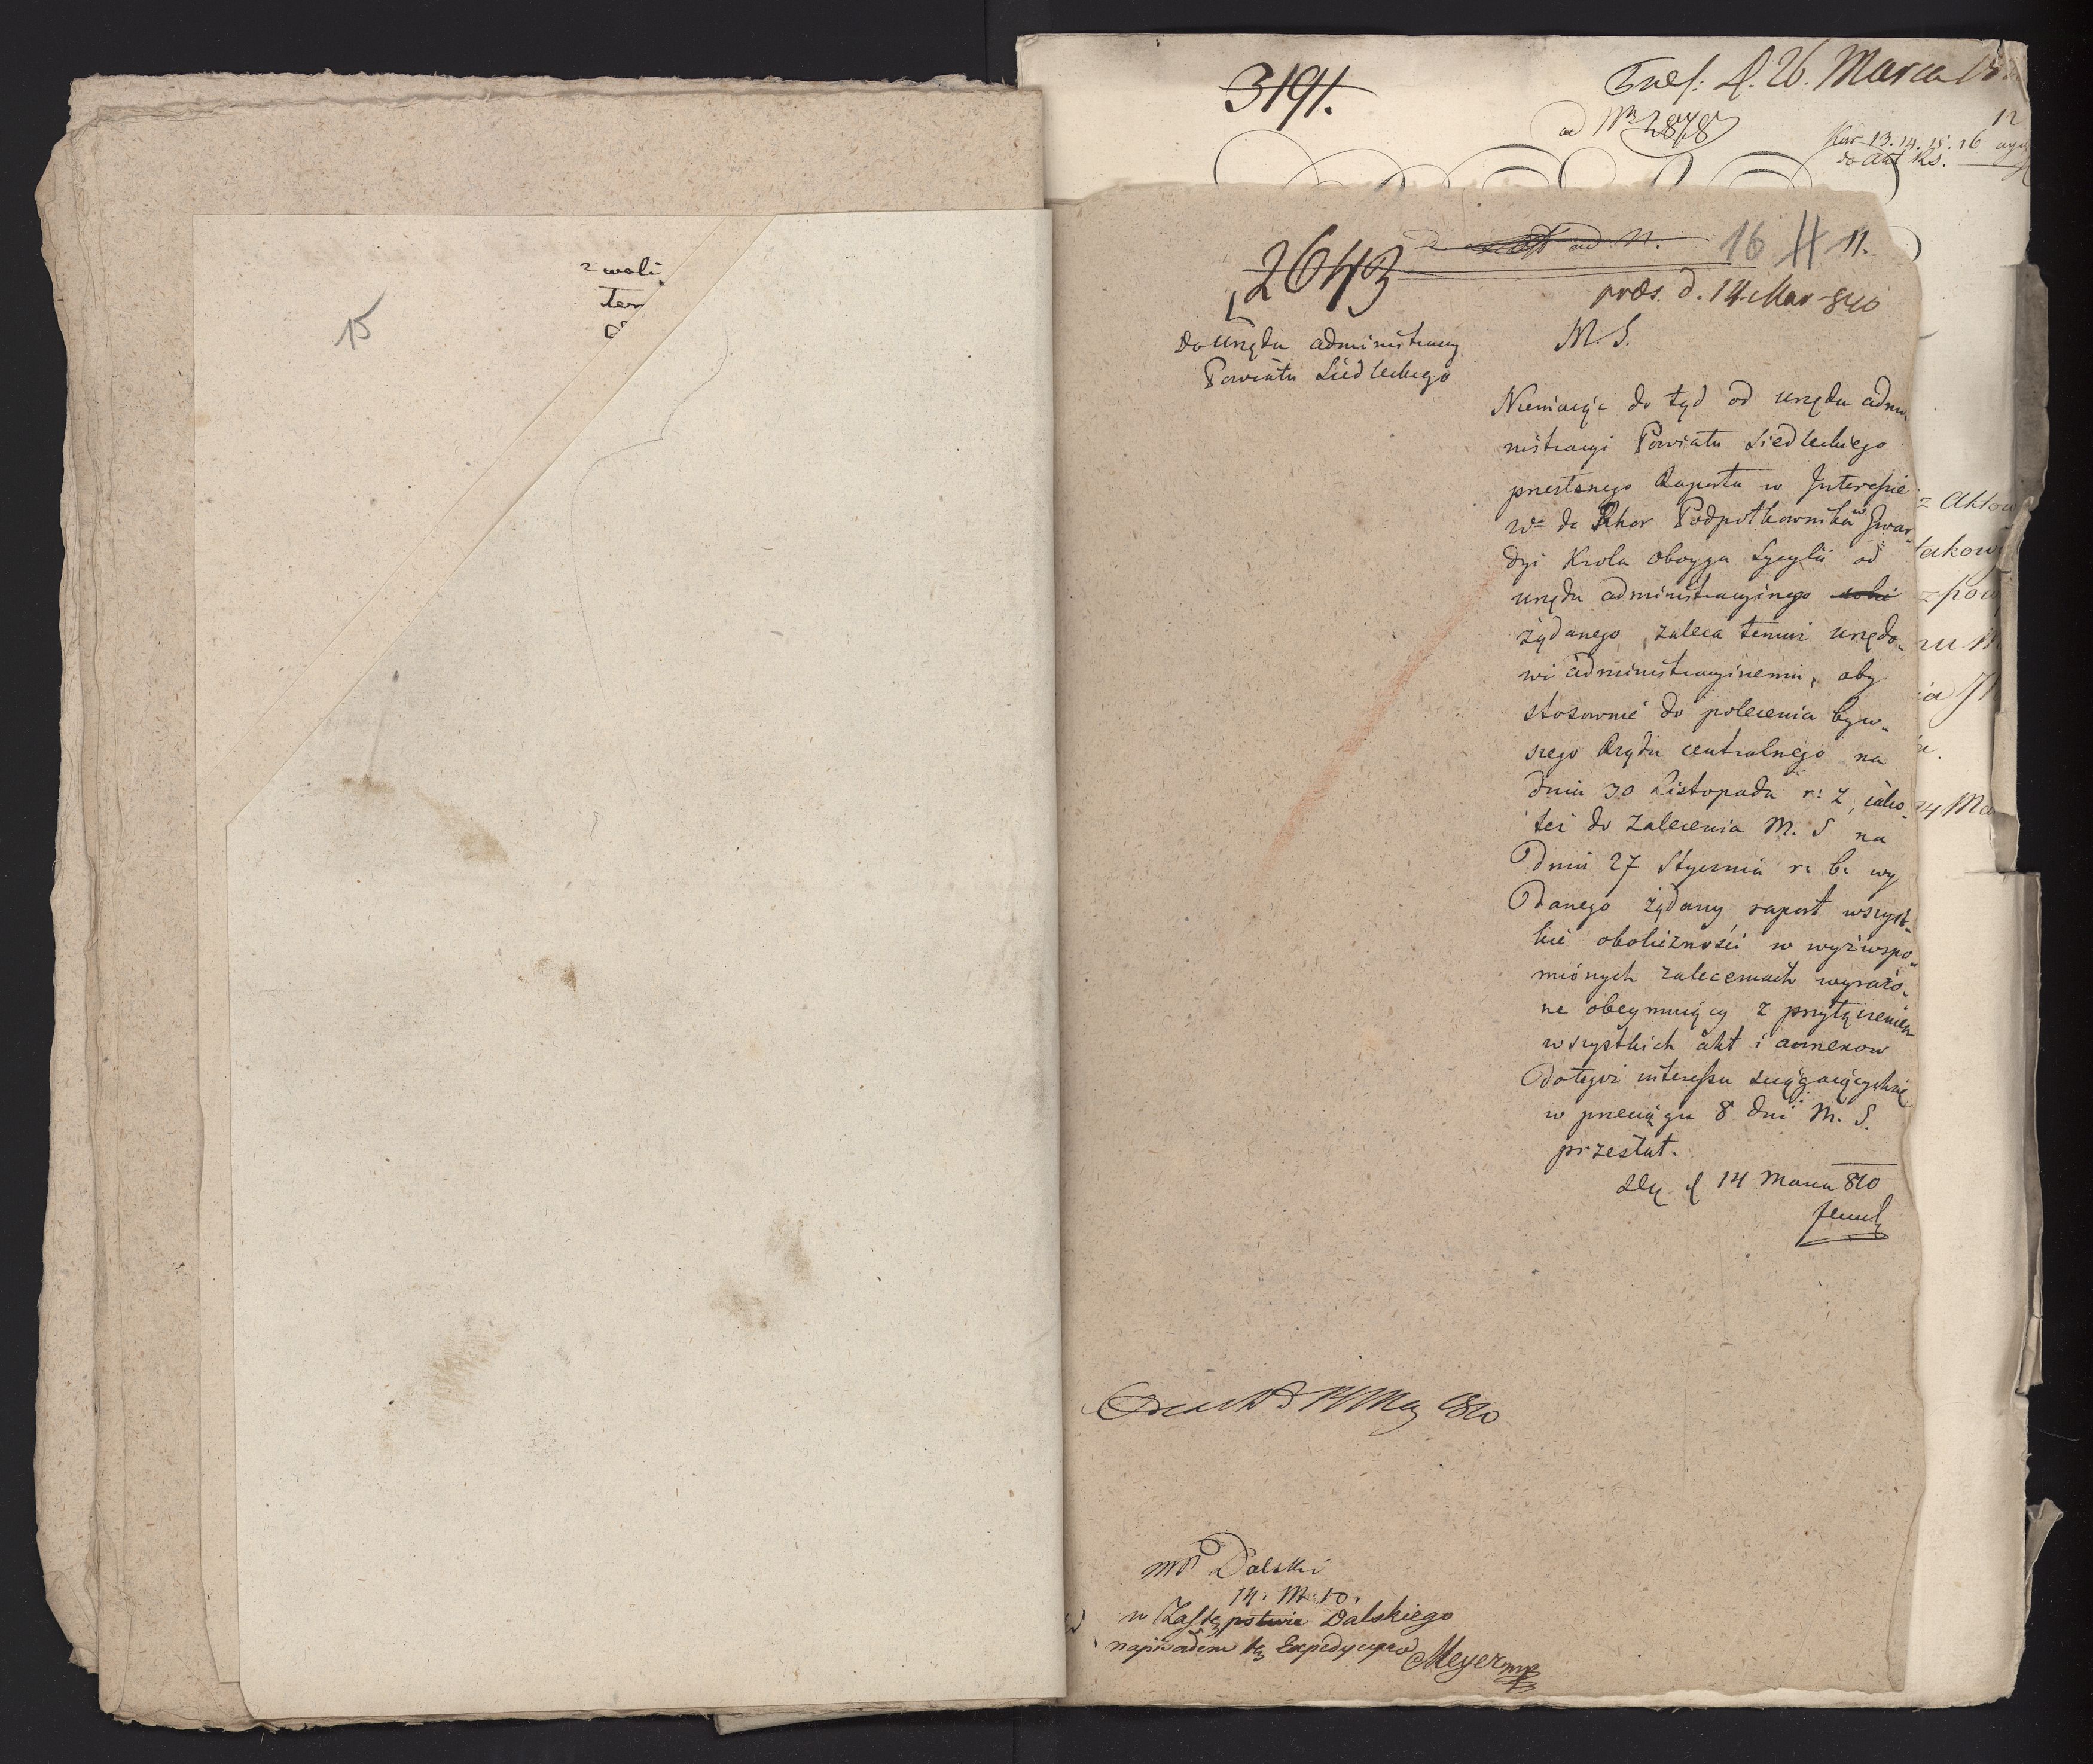 15
z woli
ter
3191.
Pres: d. 26. Marca
ad Nr 2878
12
Kar 13. 14. 15. 16
do akt Ks.
2643
ad n.
16 11.
præs. d. 14 Mar 810
Do urzędu administracy.
Powiatu Siedleckiego
M. S.
Niemaiąc do tyd od urzędu admi-
nistracyi Powiatu Siedleckiego
przesłanego Raportu w Interessie
Wo de Podpółkownika w Gwar-
dyi Krola oboyga Sycylii od
urzędu administracyinego sobie
żądanego, zaleca temuż urzędo-
wi administracyinemu, aby
stosownie do polecenia byw-
szego Rządu centralnego na
dniu 30 Listopada r: z, iako
też do zalecenia M. S na
dniu 27 Stycznia r: b: wy
danego żądany raport wszyst-
kie okoliczności w wyżwspo-
mionych zaleceniach wyrażo-
ne obeymuiący z przyłączeniem
wszystkich akt i annexow
do tegoż interessu sciągaiących się
w przeciągu 8 dni M. S.
przesłał.
d 14 Marca 810
z Aktow
takow
z pow
ru
ia
24 Ma
14 Mar 810
Dalski
14. M. 10.
w Zastępstwie Dalskiego
napisałem tę Expedycyą
Meyer mp